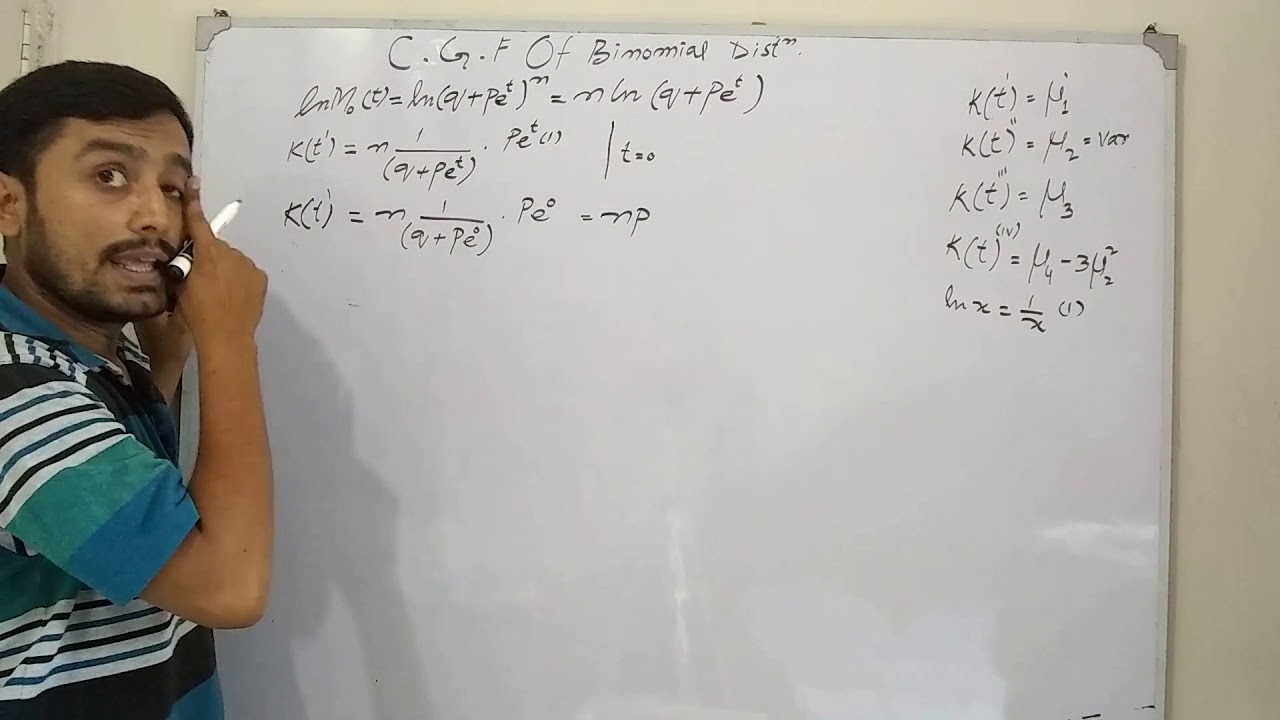 C.G.F Of Binomial Distⁿ.
ln M₀(t) = ln(q+pe^t)^n = n ln(q+pe^t)
K(t)' = n 1/(q+pe^t) · pe^t(1) | t=0
K(t)' = n 1/(q+pe^0) · Pe^0 = np
K(t)' = μ₁'
K(t)'' = μ₂ = var
K(t)''' = μ₃
K(t)^(iv) = μ₄ - 3μ₂²
ln x = 1/x (1)